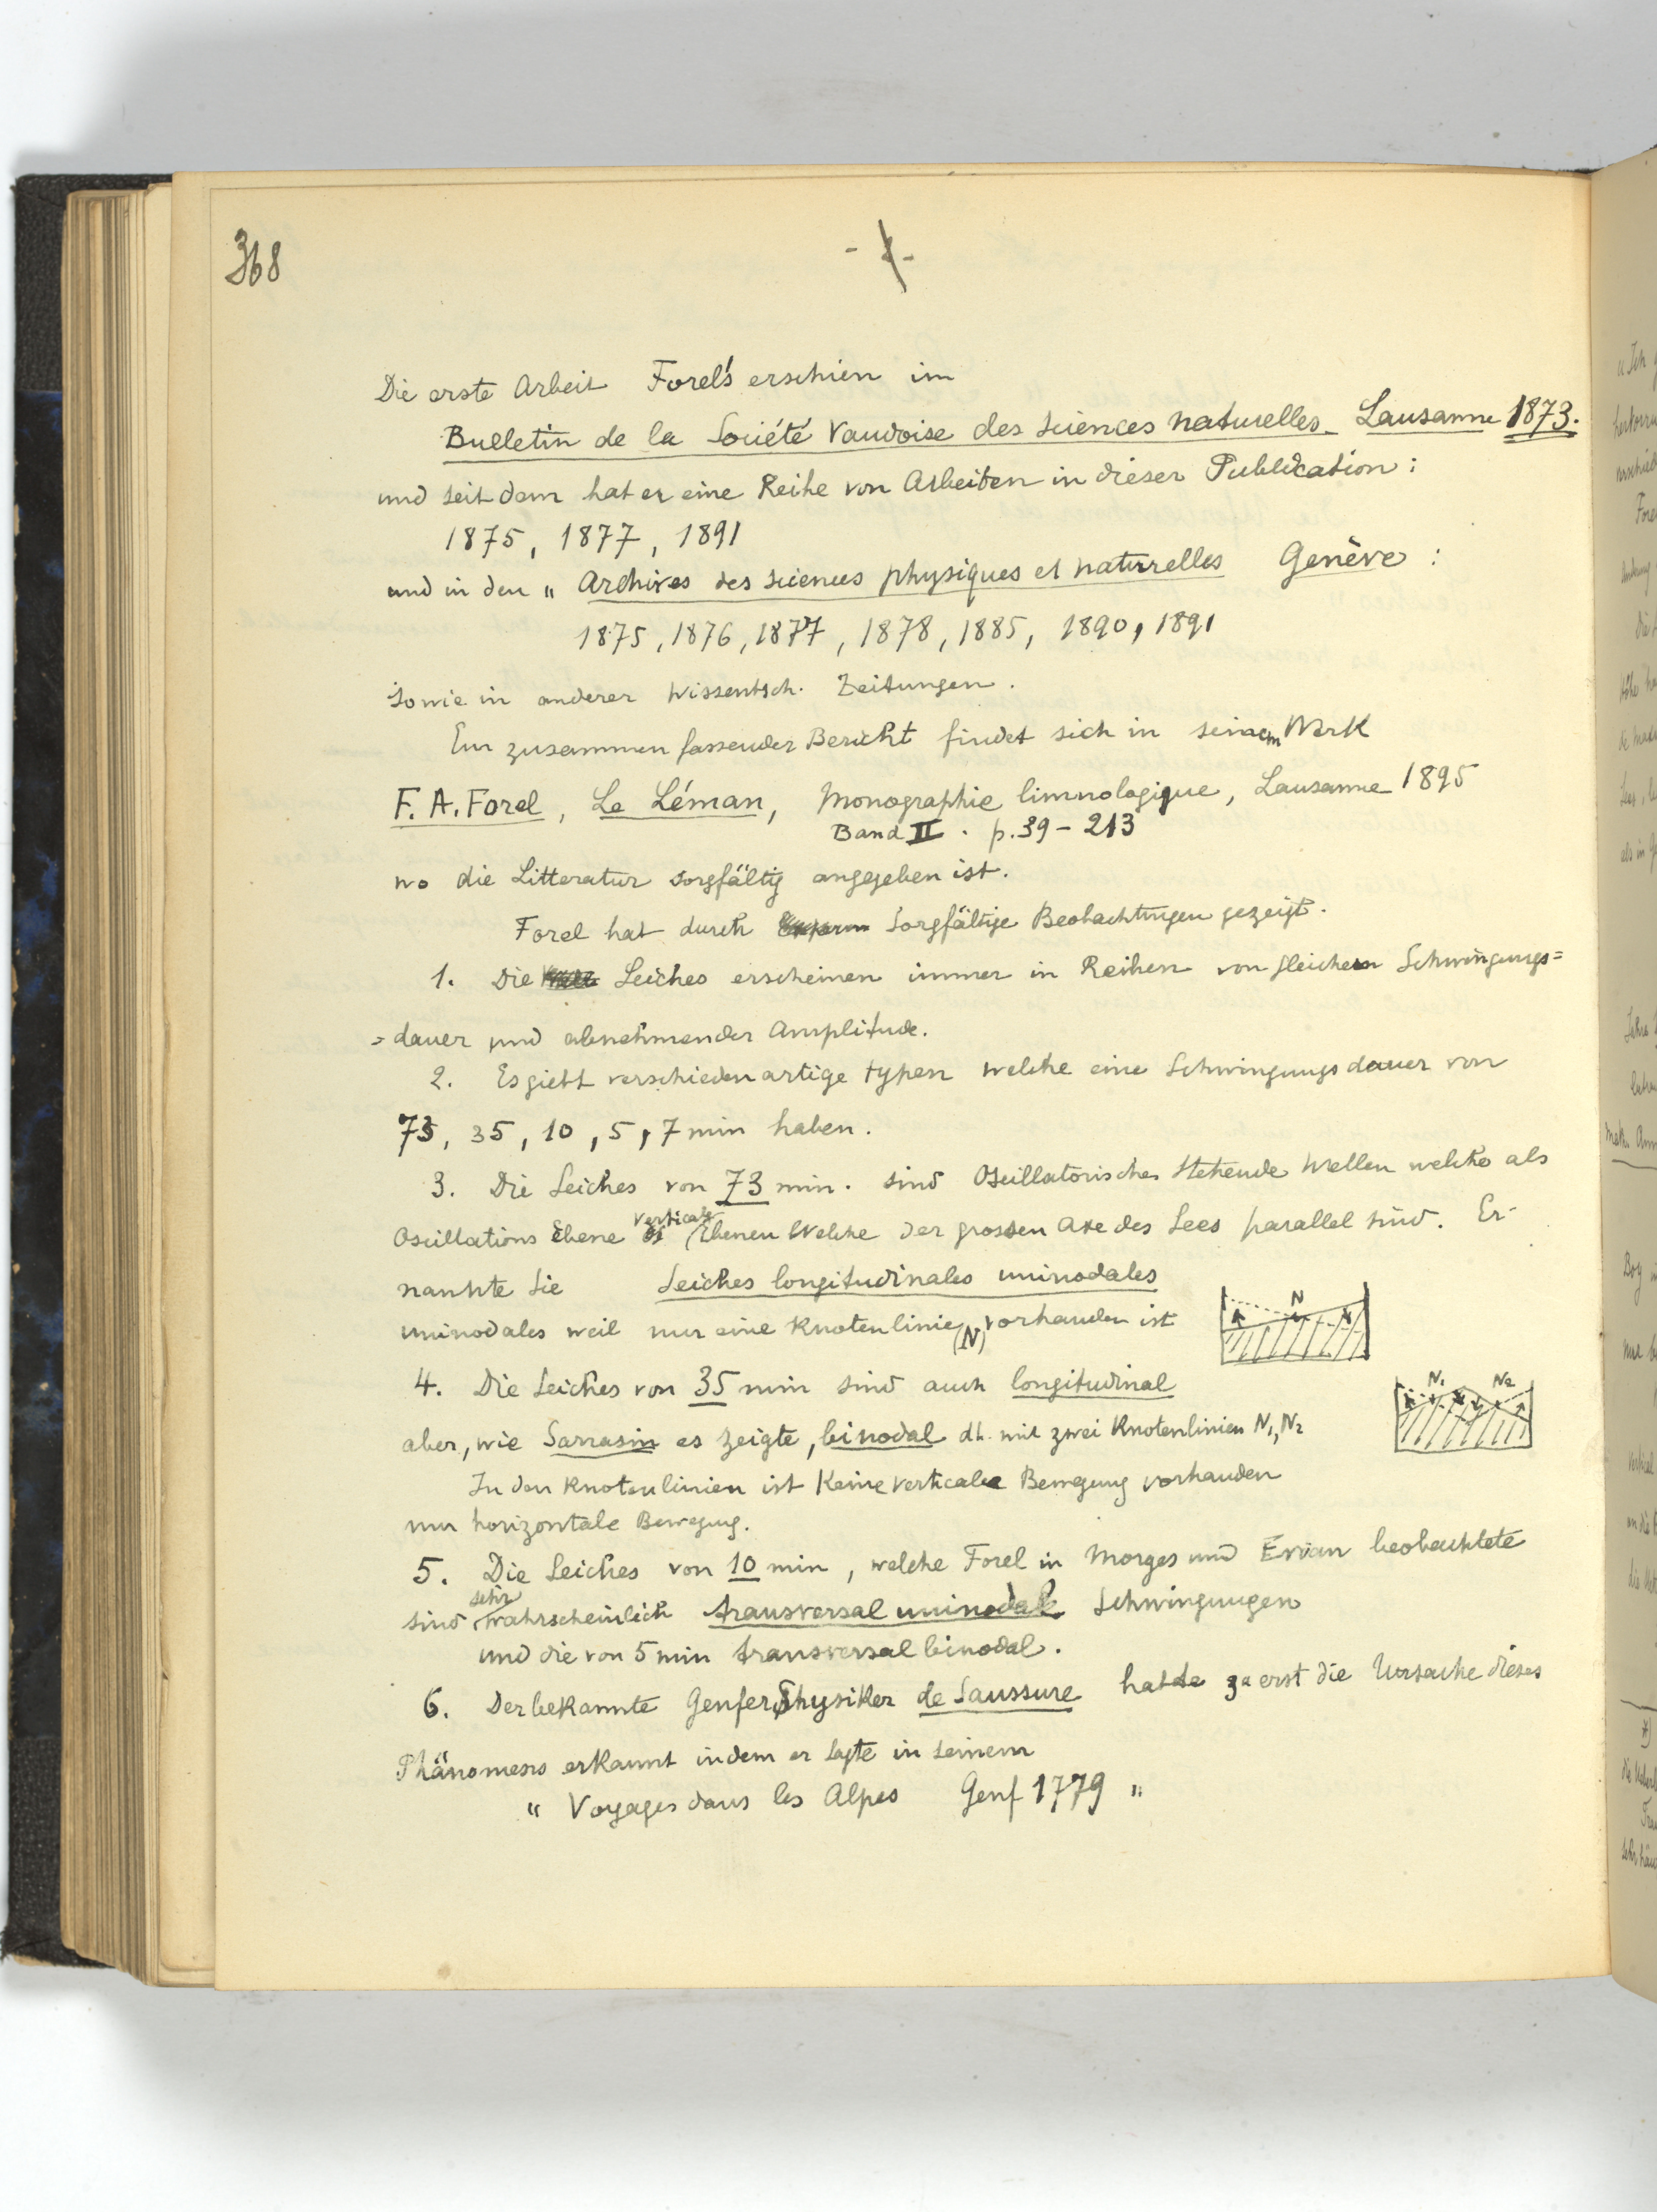 368
Die erste Arbeit Forel's erschien im
Bulletin de la Société Vaudoise des sciences naturelles Lausanne 1873.
und seit dem hat er eine Reihe von Arbeiten in dieser Publication :
1875, 1877, 1891
und in den " Archives des sciences physiques et naturelles Genève :
1875, 1876, 1877, 1878, 1885, 1890, 1891
sowie in anderer wissentsch. Zeitungen.
Ein zusammen fassender Bericht findet sich in seinem Werk
F. A. Forel, Le Léman, Monographie limnologique, Lausanne 1895
Band II. p. 39 - 213
wo die Litteratur sorgfältig angegeben ist.
Forel hat durch sorgfältige Beobachtungen gezeigt.
1. Die Seiches erscheinen immer in Reihen von gleichen Schwingungs=
=dauer und abnehmender Amplitude.
2. Es giebt verschiedenartige typen welche eine Schwingungsdauer von
73, 35, 10, 5, 7 min haben.
3. Die Seiches von 73 min. sind Oscillatorisches stehende Wellen welche als
Oscillations Ebene verticale Ebenen welche der grossen Axe des Sees parallel sind. Er-
nannte sie Seiches longitudinales uninodales
uninodales weil nur eine Knotenlinie (N) vorhanden ist
N
4. Die Seiches von 35 min sind auch longitudinal
aber, wie Sarrasin es zeigte, binodal dh. mit zwei Knotenlinien N1, N2
N1 N2
In den Knotenlinien ist keine verticale Bewegung vorhanden
nur horizontale Bewegung.
5. Die Seiches von 10 min, welche Forel in Morges und Evian beobachtete
sind sehr wahrscheinlich transversal uninodale Schwingungen
und die von 5 min transversal binodal.
6. Der bekannte Genfer Physiker de Saussure hatte zuerst die Ursache dieses
Phänomens erkannt indem er sagte in seinem
" Voyages dans les Alpes Genf 1779 "